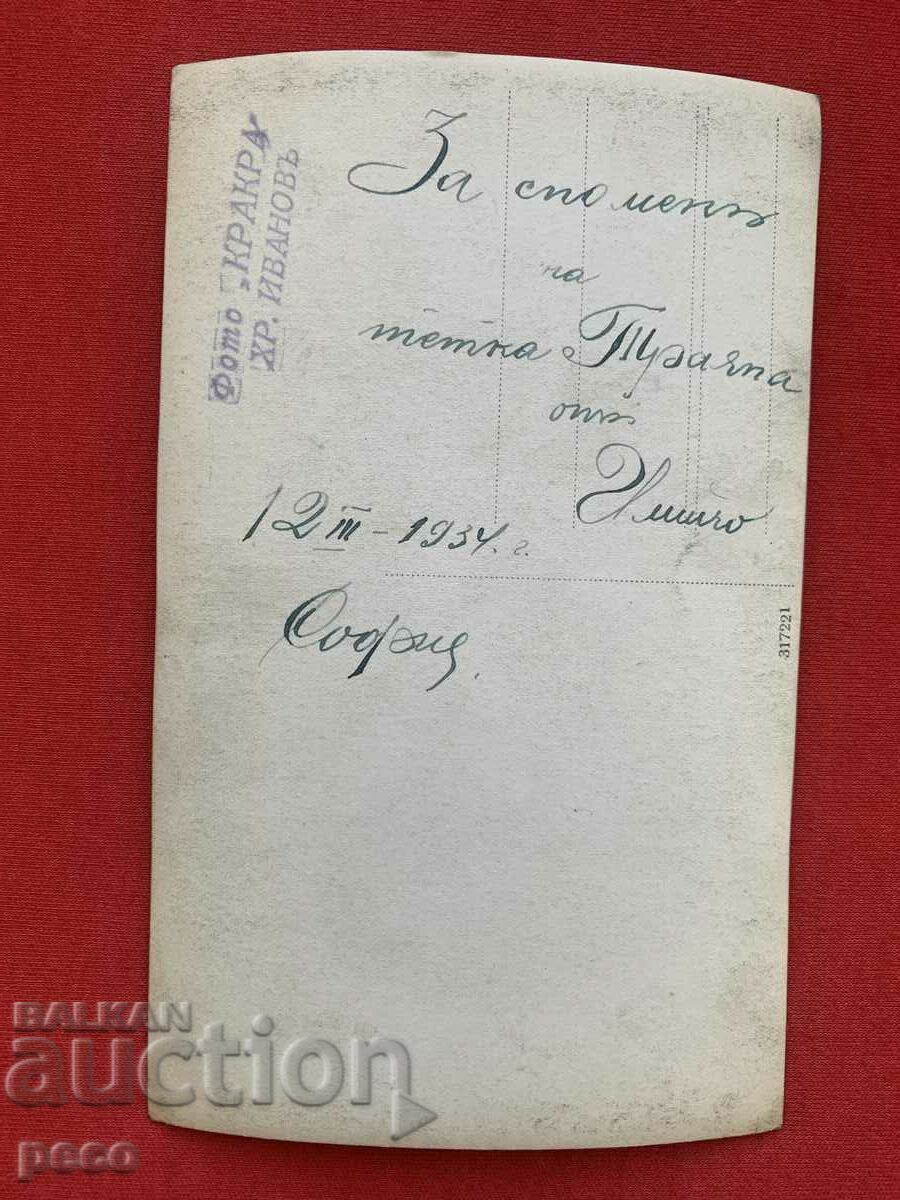 Фото „КРАКРА
ХР. ИВАНОВЪ
За споменъ
на
тетка
отъ
12 III - 1934. г.
София.
317221
BALKAN
auction
peco